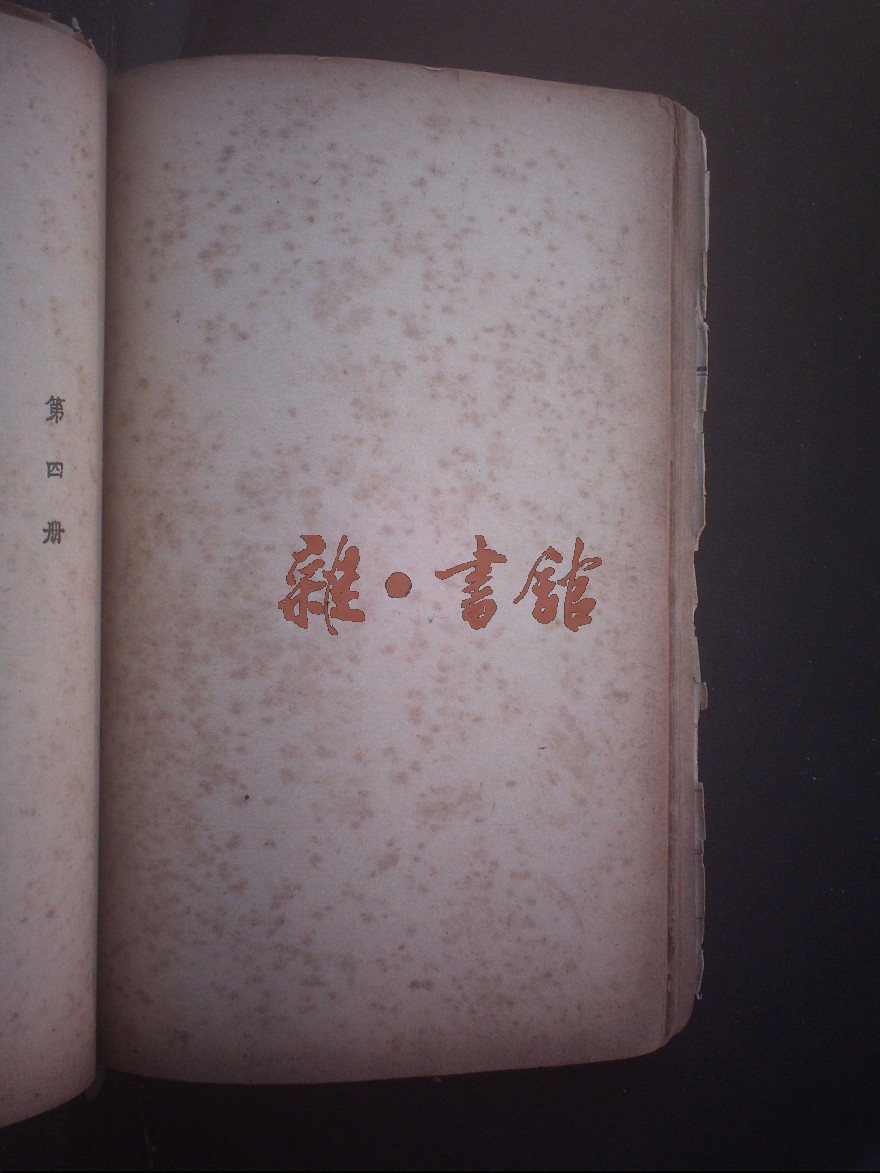 第四册
雜·書館